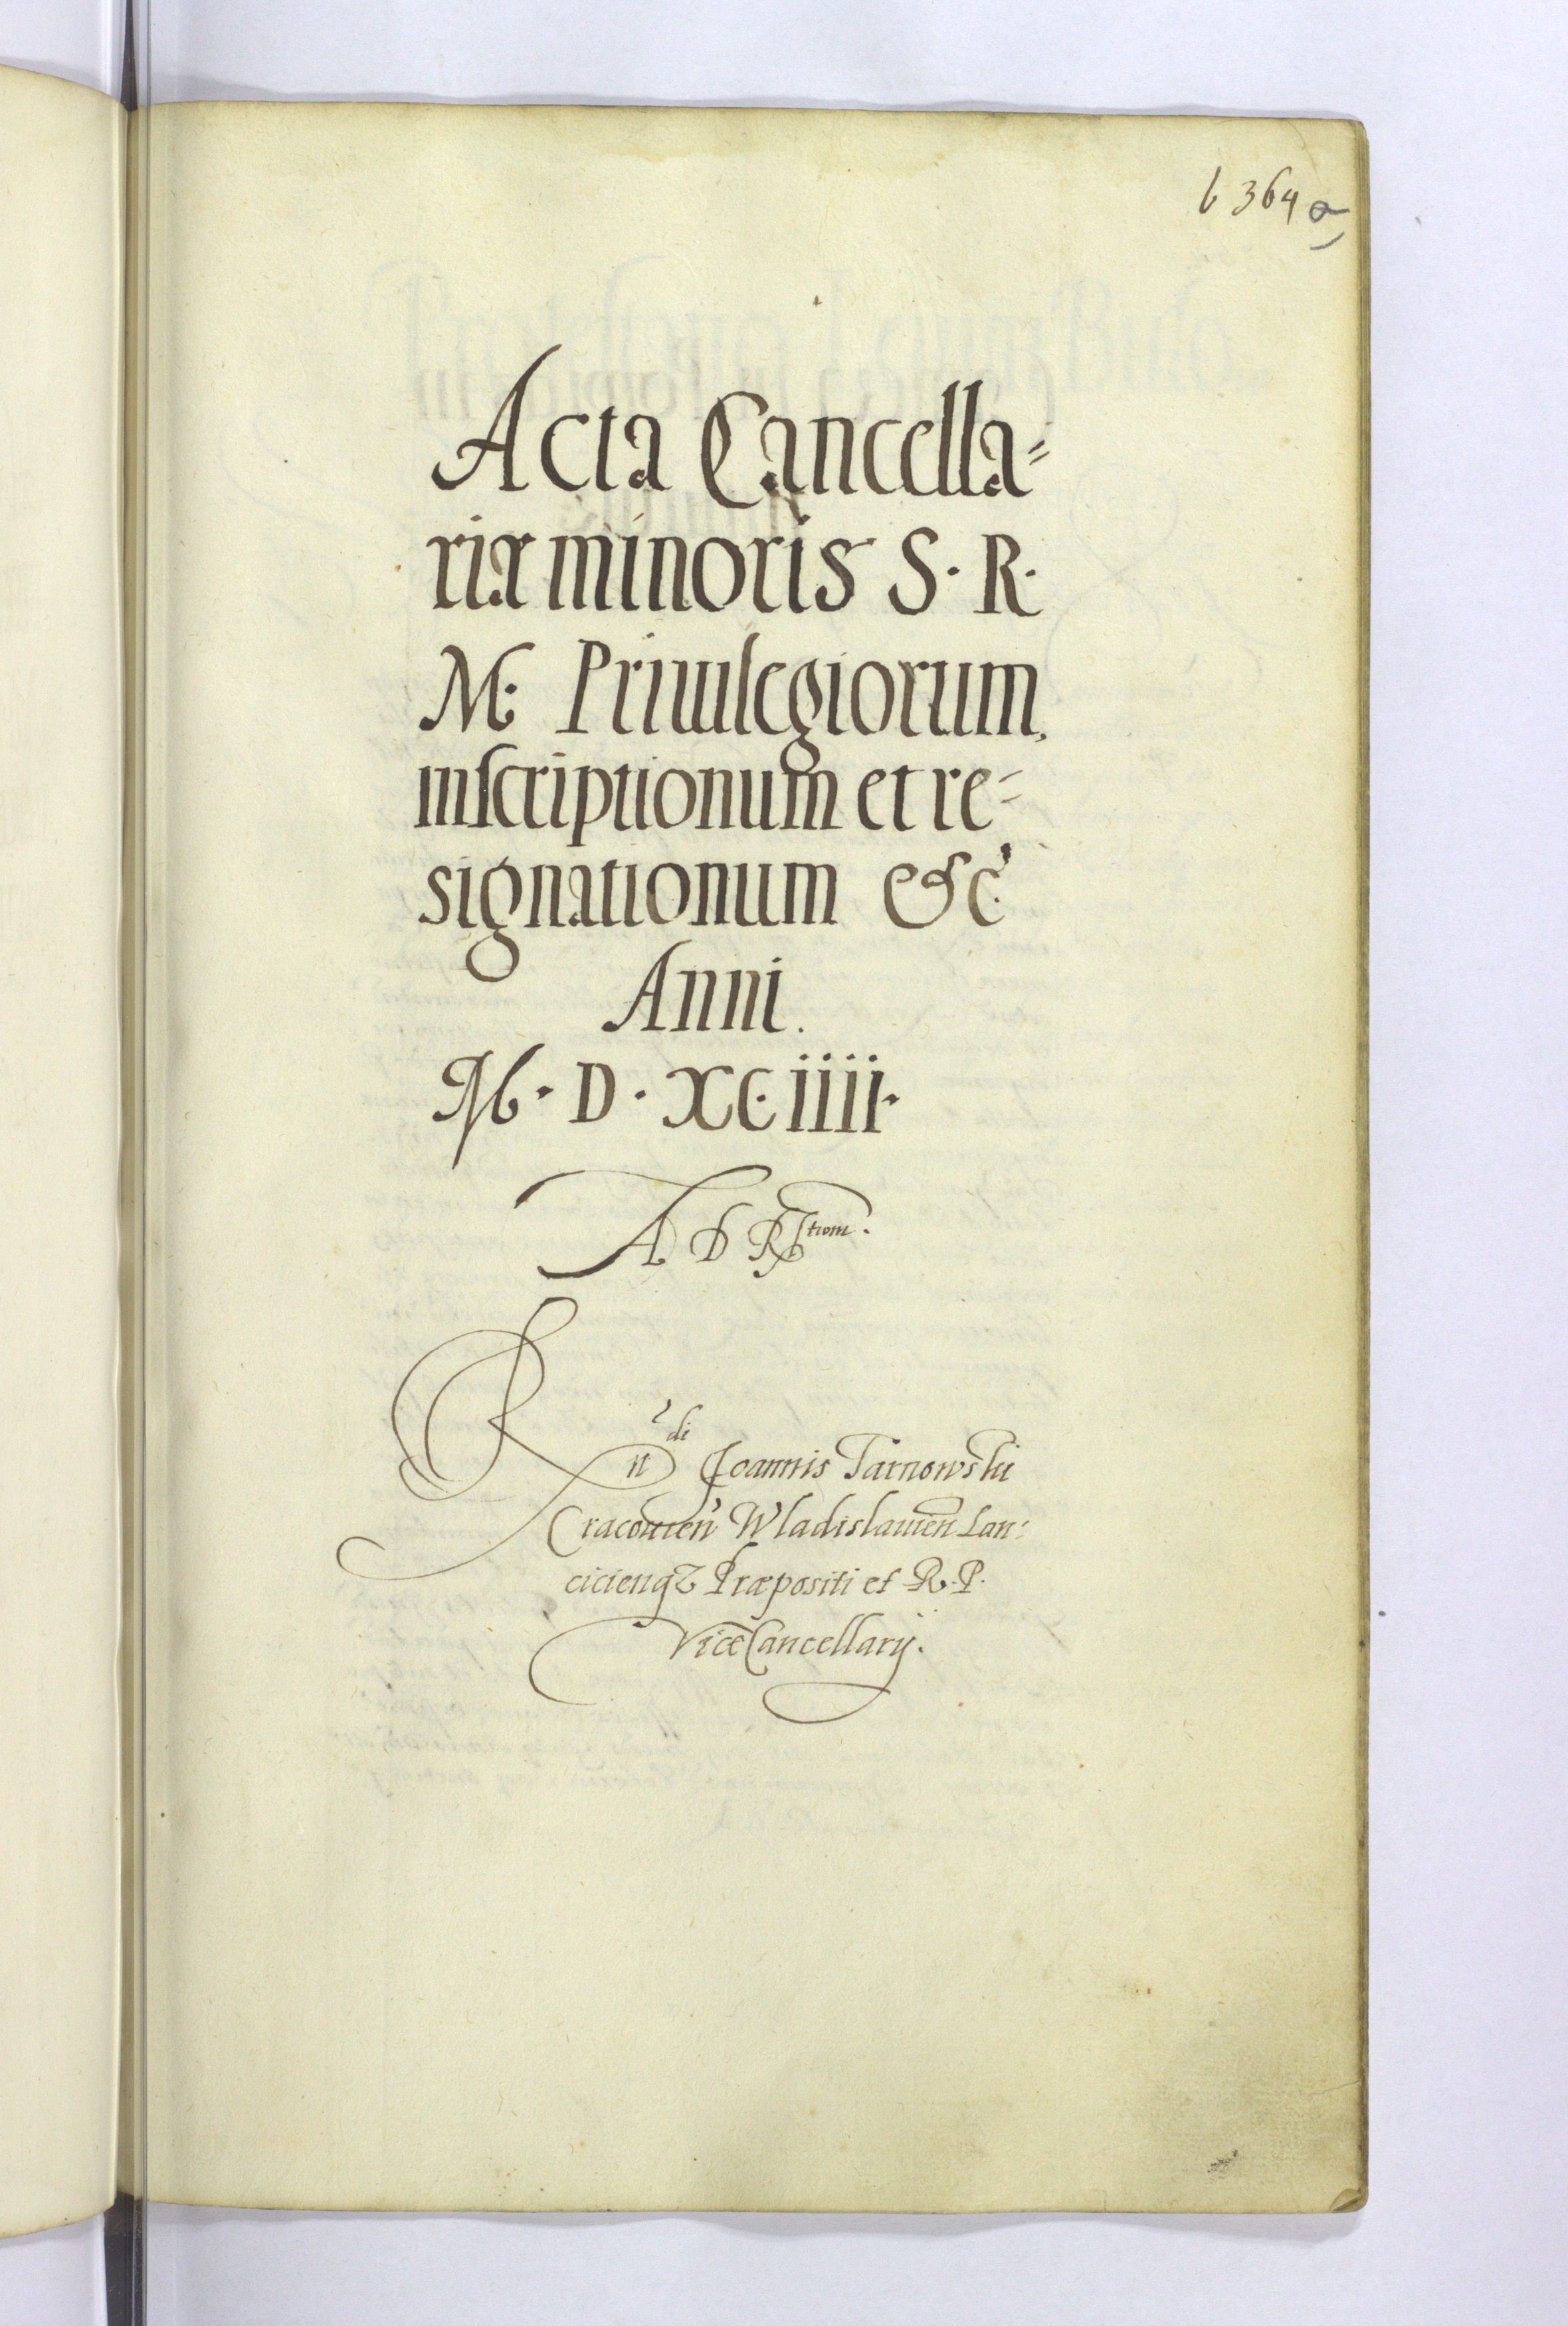 b 364 a
Acta Cancella=
riæ minoris S. R.
M. Priuilegiorum,
inscriptionum et re=
signationum &c
Anni.
M. D. XC iiii.
AD R
Rndi Joannis Tarnowski
Cracouien Wladislauien Lan:
cicienqz Præpositi et R. P.
ViceCancellarij.